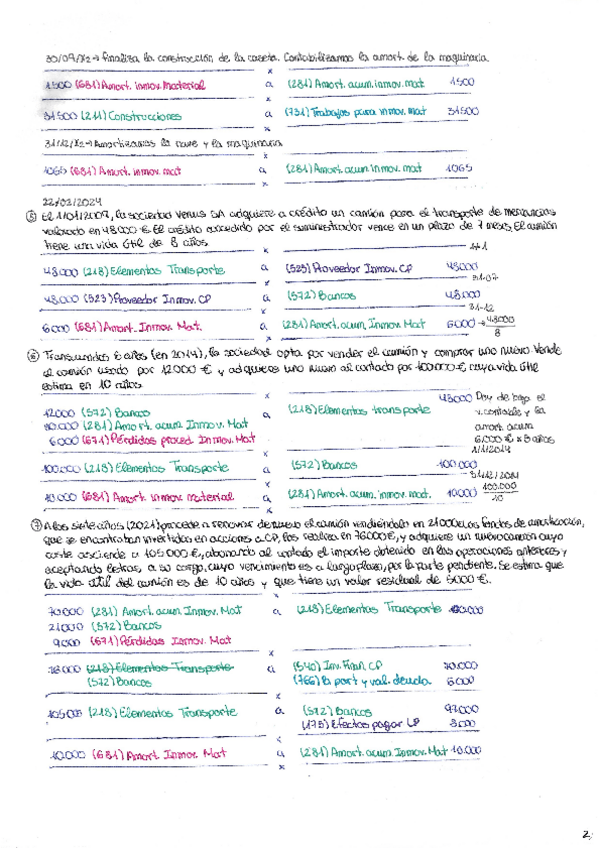 30/09/X2 → Finaliza la construcción de la caseta. Contabilizamos la amort. de la maquinaria.
x
1500 (681) Amort. inmov. Material a (281) Amort. acum. inmov. mat 1500
x
31500 (211) Construcciones a (731) Trabajos para inmov. mat 31500
x
31/12/X2 → Amortizamos la nave y la maquinaria
x
1065 (681) Amort. inmov. mat a (281) Amort. acum. inmov. mat 1065
x
22/02/2024
⑤ El 1/01/2007, la sociedad Venus SA adquiere a crédito un camión para el transporte de mercancías
valorado en 48000 €. El crédito concedido por el suministrador vence en un plazo de 7 meses. El camión
tiene una vida útil de 8 años.
x 1-1
48.000 (218) Elementos Transporte a (523) Proveedor Inmov. CP 48000
x 31-07
48.000 (523) Proveedor Inmov. CP a (572) Bancos 48.000
x 31-12
6000 (681) Amort. Inmov. Mat. a (281) Amort. acum. Inmov. Mat 6000 → 48000
x 8
⑥ Transcurridos 6 años (en 2014), la sociedad opta por vender el camión y comprar uno nuevo. Vende
el camión usado por 12000 € y adquiere uno nuevo al contado por 100.000 € cuya vida útil
estima en 10 años.
x
12000 (572) Bancos a (218) Elementos transporte 48000 Doy de baja el
(281) Amort. acum. Inmov. Mat v. contable y la
6000 (671) Pérdidas proced. Inmov. Mat amort. acum
6.000 € x 5 años
x 1/1/2014
100.000 (218) Elementos Transporte a (572) Bancos 100.000
x 31/12/2014
10.000 (681) Amort. inmov. material a (281) Amort. acum. inmov. mat. 10.000 100.000
x 10
⑦ A los siete años (2021) procede a renovar de nuevo el camión vendiéndolo en 21000. Los fondos de amortización,
que se encontraban invertidos en acciones a CP, los realiza en 76000€, y adquiere un nuevo camión cuyo
coste asciende a 105000 €, abonando al contado el importe obtenido en las operaciones anteriores y
aceptando letras a su cargo, cuyo vencimiento es a largo plazo, por la parte pendiente. Se estima que
la vida útil del camión es de 10 años y que tiene un valor residual de 5000 €.
x
70000 (281) Amort. acum. Inmov. Mat a (218) Elementos Transporte 100.000
21000 (572) Bancos
9000 (671) Pérdidas Inmov. Mat
x
(218) Elementos Transporte a (540) Inv. Finan. CP 70.000
(572) Bancos (766) B part y val. deuda 6.000
x
105000 (218) Elementos Transporte a (572) Bancos 97000
(175) Efectos pagar LP
x
10.000 (681) Amort. Inmov. Mat a (281) Amort. acum. Inmov. Mat 10.000
x
2